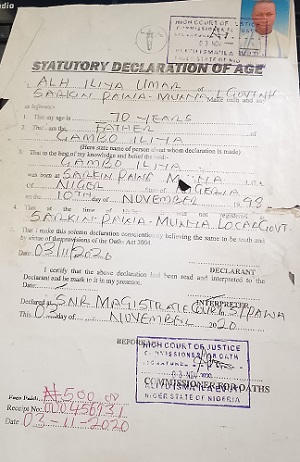 HIGH COURT OF JUSTICE
STATUTORY DECLARATION OF AGE
I ALH ILIYA UMAR of L GOVTNT
SARKIN PAWA - MUNYA Make oath and say
as follows:
1. That my age is 70 YEARS
2. That I am the FATHER of
GAMBO ILIYA
(Here state name of person about whom declaration is made)
3. That to the best of my knowledge and belief the said
GAMBO ILIYA
was born at SARKIN PAWA
Of NIGER State of
on the 10TH day of NOVEMBER
4. That at the time of birth not registered at
SARKIN PAWA - MUNYA LOCAL GOVT.
That I make this solemn declaration conscientiously believing the same to be true and
by virtue of the provisions of the Oaths Act 2004
Date: 03/11/2020
DECLARANT
I certify that the above declaration had been read and interpreted to the
Declarant and he mark to it in my presence.
Date:
INTERPRETER
Declared at SNR MAGISTRATE COURT S/PAWA
This 03 day of NOVEMBER 2020
BEFORE
HIGH COURT OF JUSTICE
COMMISSIONER FOR OATH
03 NOV 2020
NIGER STATE OF NIGERIA
COMMISSIONER FOR OATHS
Fees Paid: ₦500.00
Receipt No: 000456931
Date 03-11-2020